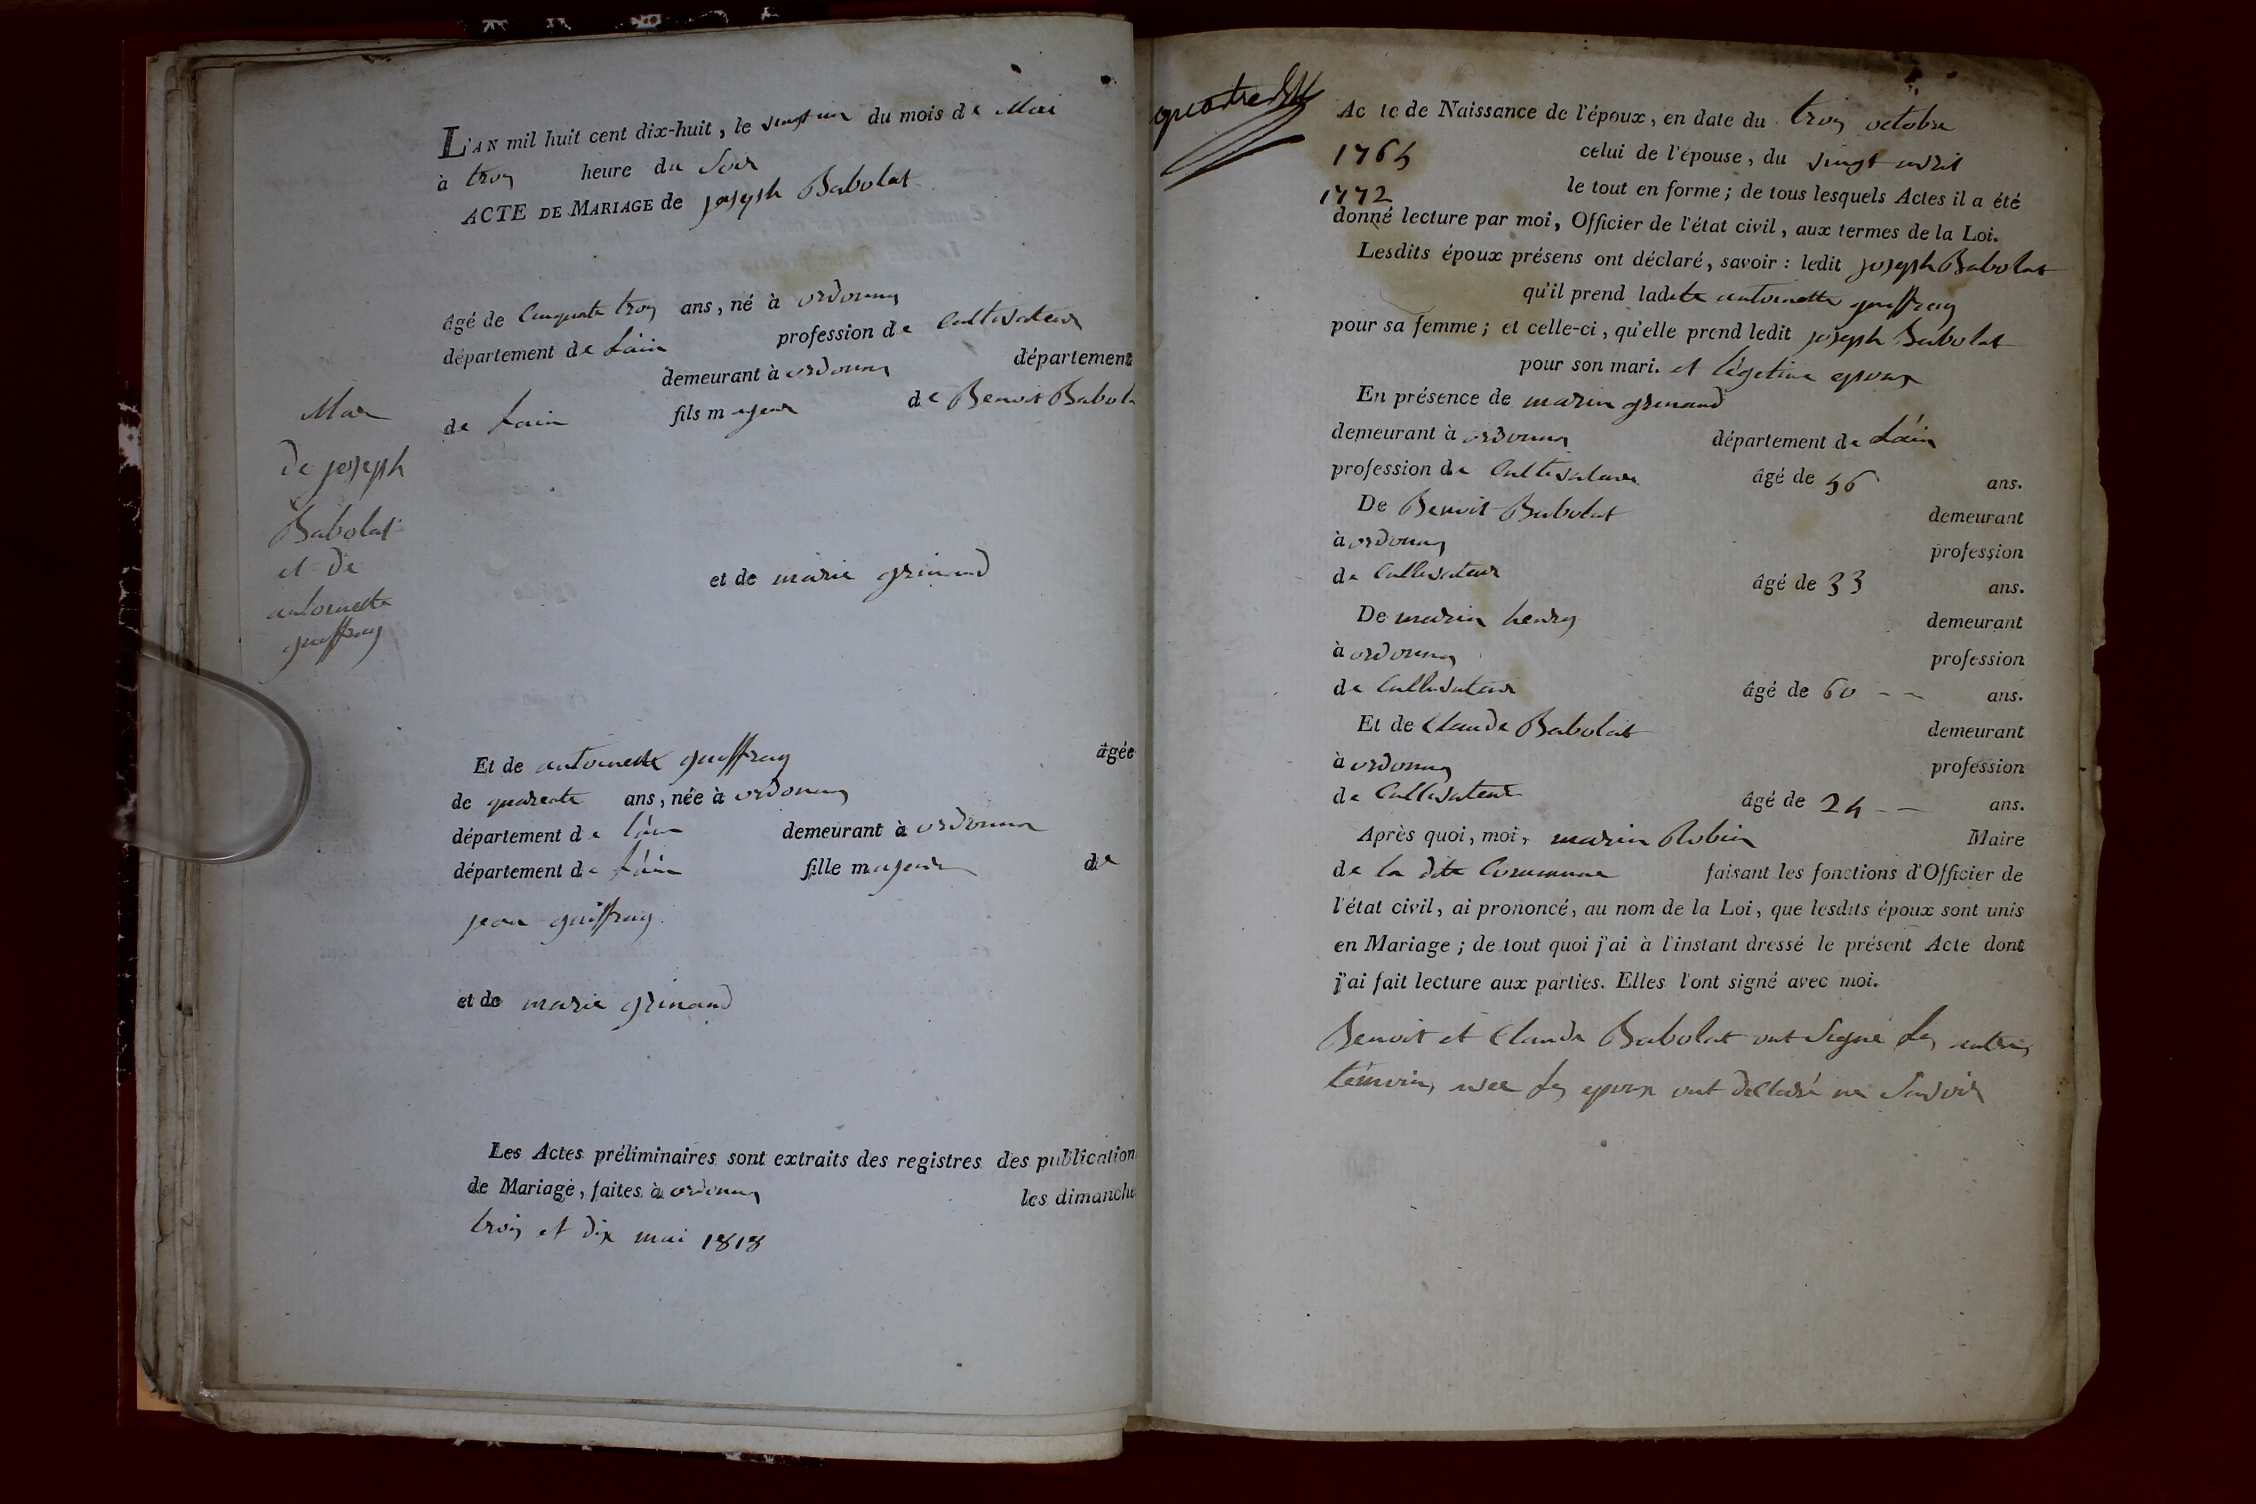 L'AN mil huit cent dix-huit, le vingt un du mois de Mai
à trois heure du Soir
ACTE DE MARIAGE de joseph Babolat
âgé de Cinquante trois ans, né à ordonnas
département de L'ain profession de Cultivateur
demeurant à ordonnas département
de L'ain fils majeur de Benoit Babola
Mar
de joseph
Babolat
et de
antoinette
guiffray
et de marie grinand
Et de antoinette guiffray âgée
de quarente ans, née à ordonnas
département de l'ain demeurant à ordonnas
département de L'ain fille majeure de
jean guiffray
et de marie grinand
Les Actes préliminaires sont extraits des registres des publication
de Mariage, faites à ordonnas les dimanche
trois et dix mai 1818
quatre
Acte de Naissance de l'époux, en date du trois octobre
1765 celui de l'épouse, du vingt avril
1772 le tout en forme; de tous lesquels Actes il a été
donné lecture par moi, Officier de l'état civil, aux termes de la Loi.
Lesdits époux présens ont déclaré, savoir: ledit joseph Babolat
qu'il prend ladite antoinette guiffray
pour sa femme; et celle-ci, qu'elle prend ledit joseph Babolat
pour son mari. et légetime epoux
En présence de marin grinand
demeurant à ordonnas département de L'ain
profession de Cultivateur âgé de 56 ans.
De Benoit Babolat demeurant
à ordonnas profession
de Cultivateur âgé de 33 ans.
De marin henry demeurant
à ordonnas profession
de Cultivateur âgé de 60 -- ans.
Et de Claude Babolat demeurant
à ordonnas profession
de Cultivateur âgé de 24 -- ans.
Après quoi, moi, marin Robin Maire
de la dite Commune faisant les fonctions d'Officier de
l'état civil, ai prononcé, au nom de la Loi, que lesdits époux sont unis
en Mariage; de tout quoi j'ai à l'instant dressé le présent Acte dont
j'ai fait lecture aux parties. Elles l'ont signé avec moi.
Benoit et Claude Babolat ont Signé Les autres
témoins avec Les epoux ont déClaré ne Savoir